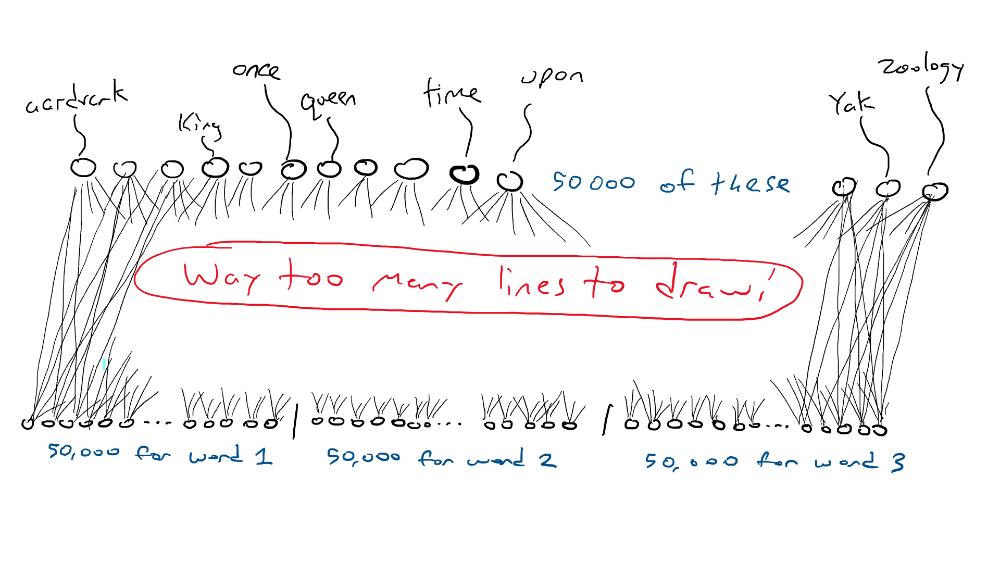 aardvark
King
once
queen
time
upon
Yak
Zoology
50000 of these
Way too many lines to draw!
...
...
...
50,000 for word 1
50,000 for word 2
50,000 for word 3